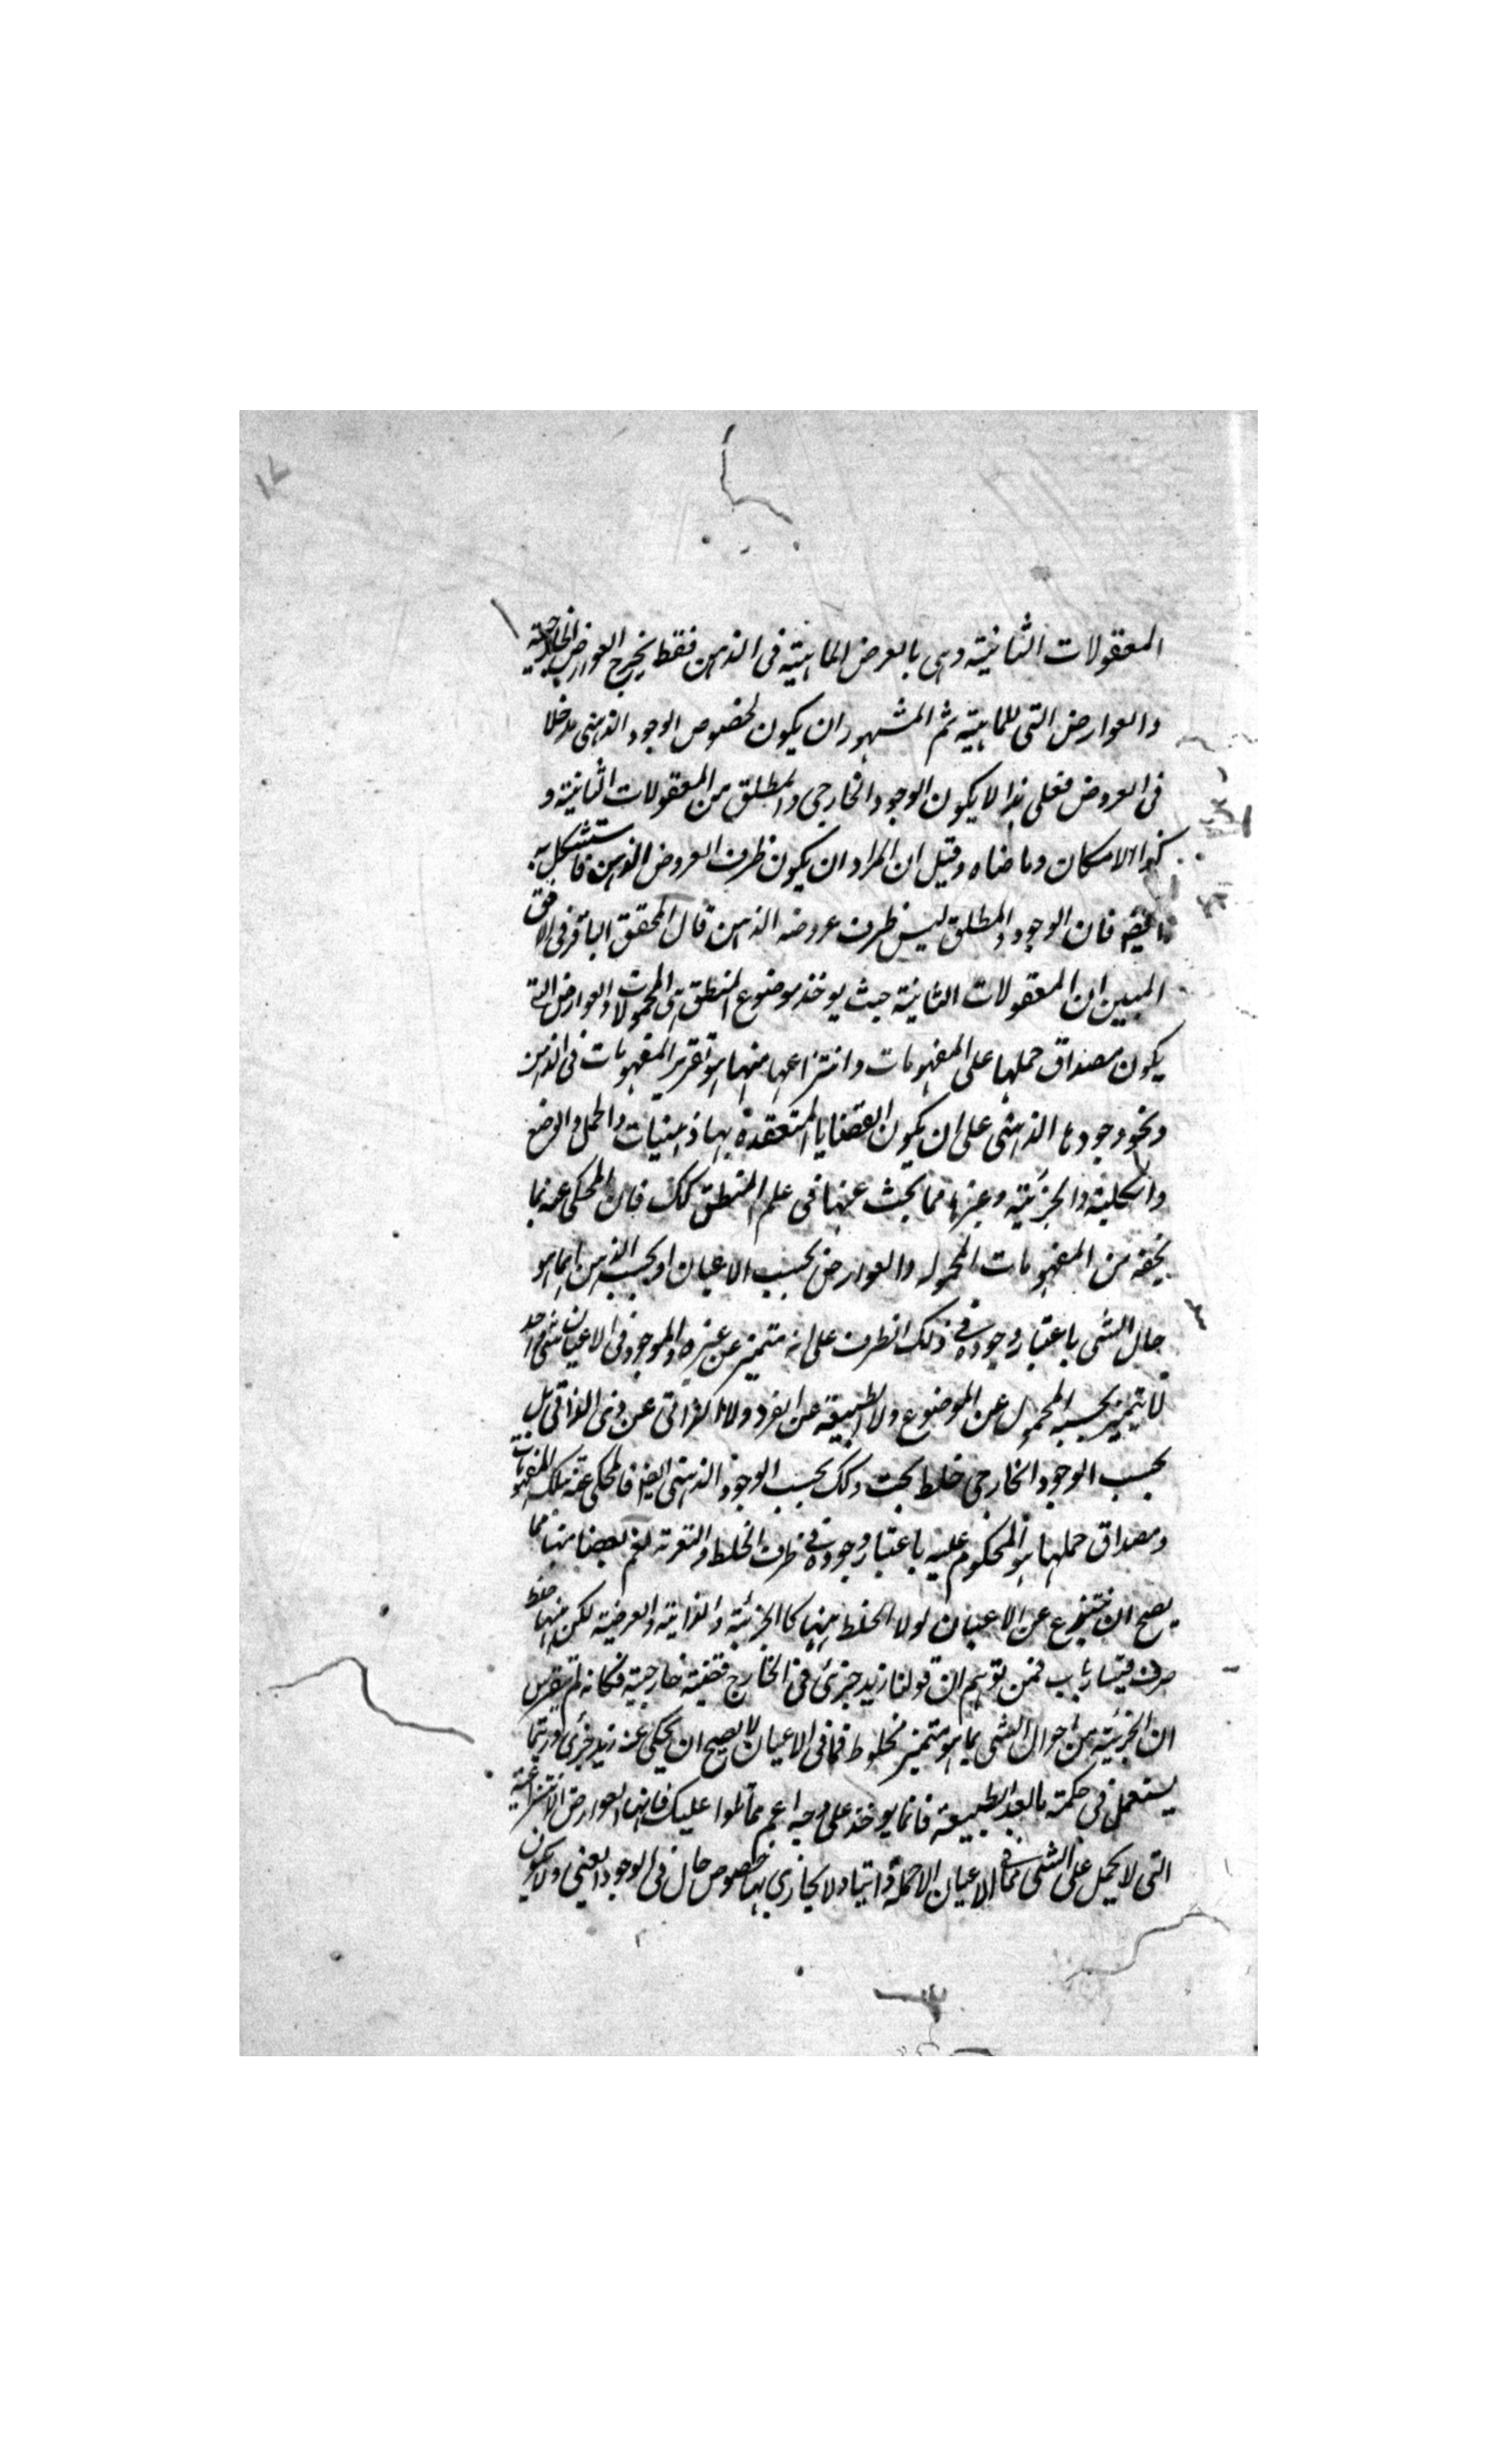 المعقولات الثانية وهى بالعرض الماهية فى الذهن فقط يخرج العوارض الخارجية
والعوارض التى للماهية ثم المشهور ان يكون لخصوص الوجود الذهنى مدخلا
فى العروض فعلى هذا لا يكون الوجود الخارجى والمطلق من المعقولات الثانية و
كذا الامكان وما ضاهاه وقيل ان المراد ان يكون ظرف العروض الذهن فاستشكل به
ايضا فان الوجود المطلق ليس ظرف عروضه الذهن قال المحقق الباقر فى الافق
المبين ان المعقولات الثانية حيث يوخذ موضوع المنطق هى المحمولات والعوارض التى
يكون مصداق حملها على المفهومات وانتزاعها منها هو تقرير المفهومات فى الذهن
ونحو وجودها الذهنى على ان يكون القضايا المتعقدة بها ذهنيات والحمل والوضع
والكلية والجزئية وغيرها مما يبحث عنها فى علم المنطق كك فان المحكى عنه بما
يحقه من المفهومات المحموله والعوارض بحسب الاعيان او بحسب الذهن انما هو
حال الشى باعتبار وجوده فى ذلك الظرف على انه متميز عن غيره والموجود فى الاعيان شى واحد
لا يتميز بحسبه المحمول عن الموضوع ولا الطبيعة عن الفرد ولا الذاتى عن ذى الذاتى بل
بحسب الوجود الخارجى خلط بحت وكك بحسب الوجود الذهنى ايضا فالمحكى عنه بتلك المفهومات
ومصداق حملها هو المحكوم عليه باعتبار وجوده فى ظرف الخلط والتعرية نعم بعضا منها مما
يصح ان ينتزع عن الاعيان لولا الخلط منها كالجزئية والذاتية والعرضية لكن منها خلط
صرف فمن توهم ان قولنا زيد جزئى فى الخارج قضية خارجية فكانه لم
ان الجزئية من احوال الشى بما هو متميز مخلوط فما فى الاعيان لا يصح ان يحكى عنه زيد جزئى وربما
يستعمل فى حكمة ما بعد الطبيعة فانما يوخذ على وجه اعم مما تلوا عليك فانها العوارض الانتزاعية
التى لا يحمل على الشى مما فى الاعيان الا حملا ولا يحاذى بها خصوص حال فى الوجود العينى ولا يكون